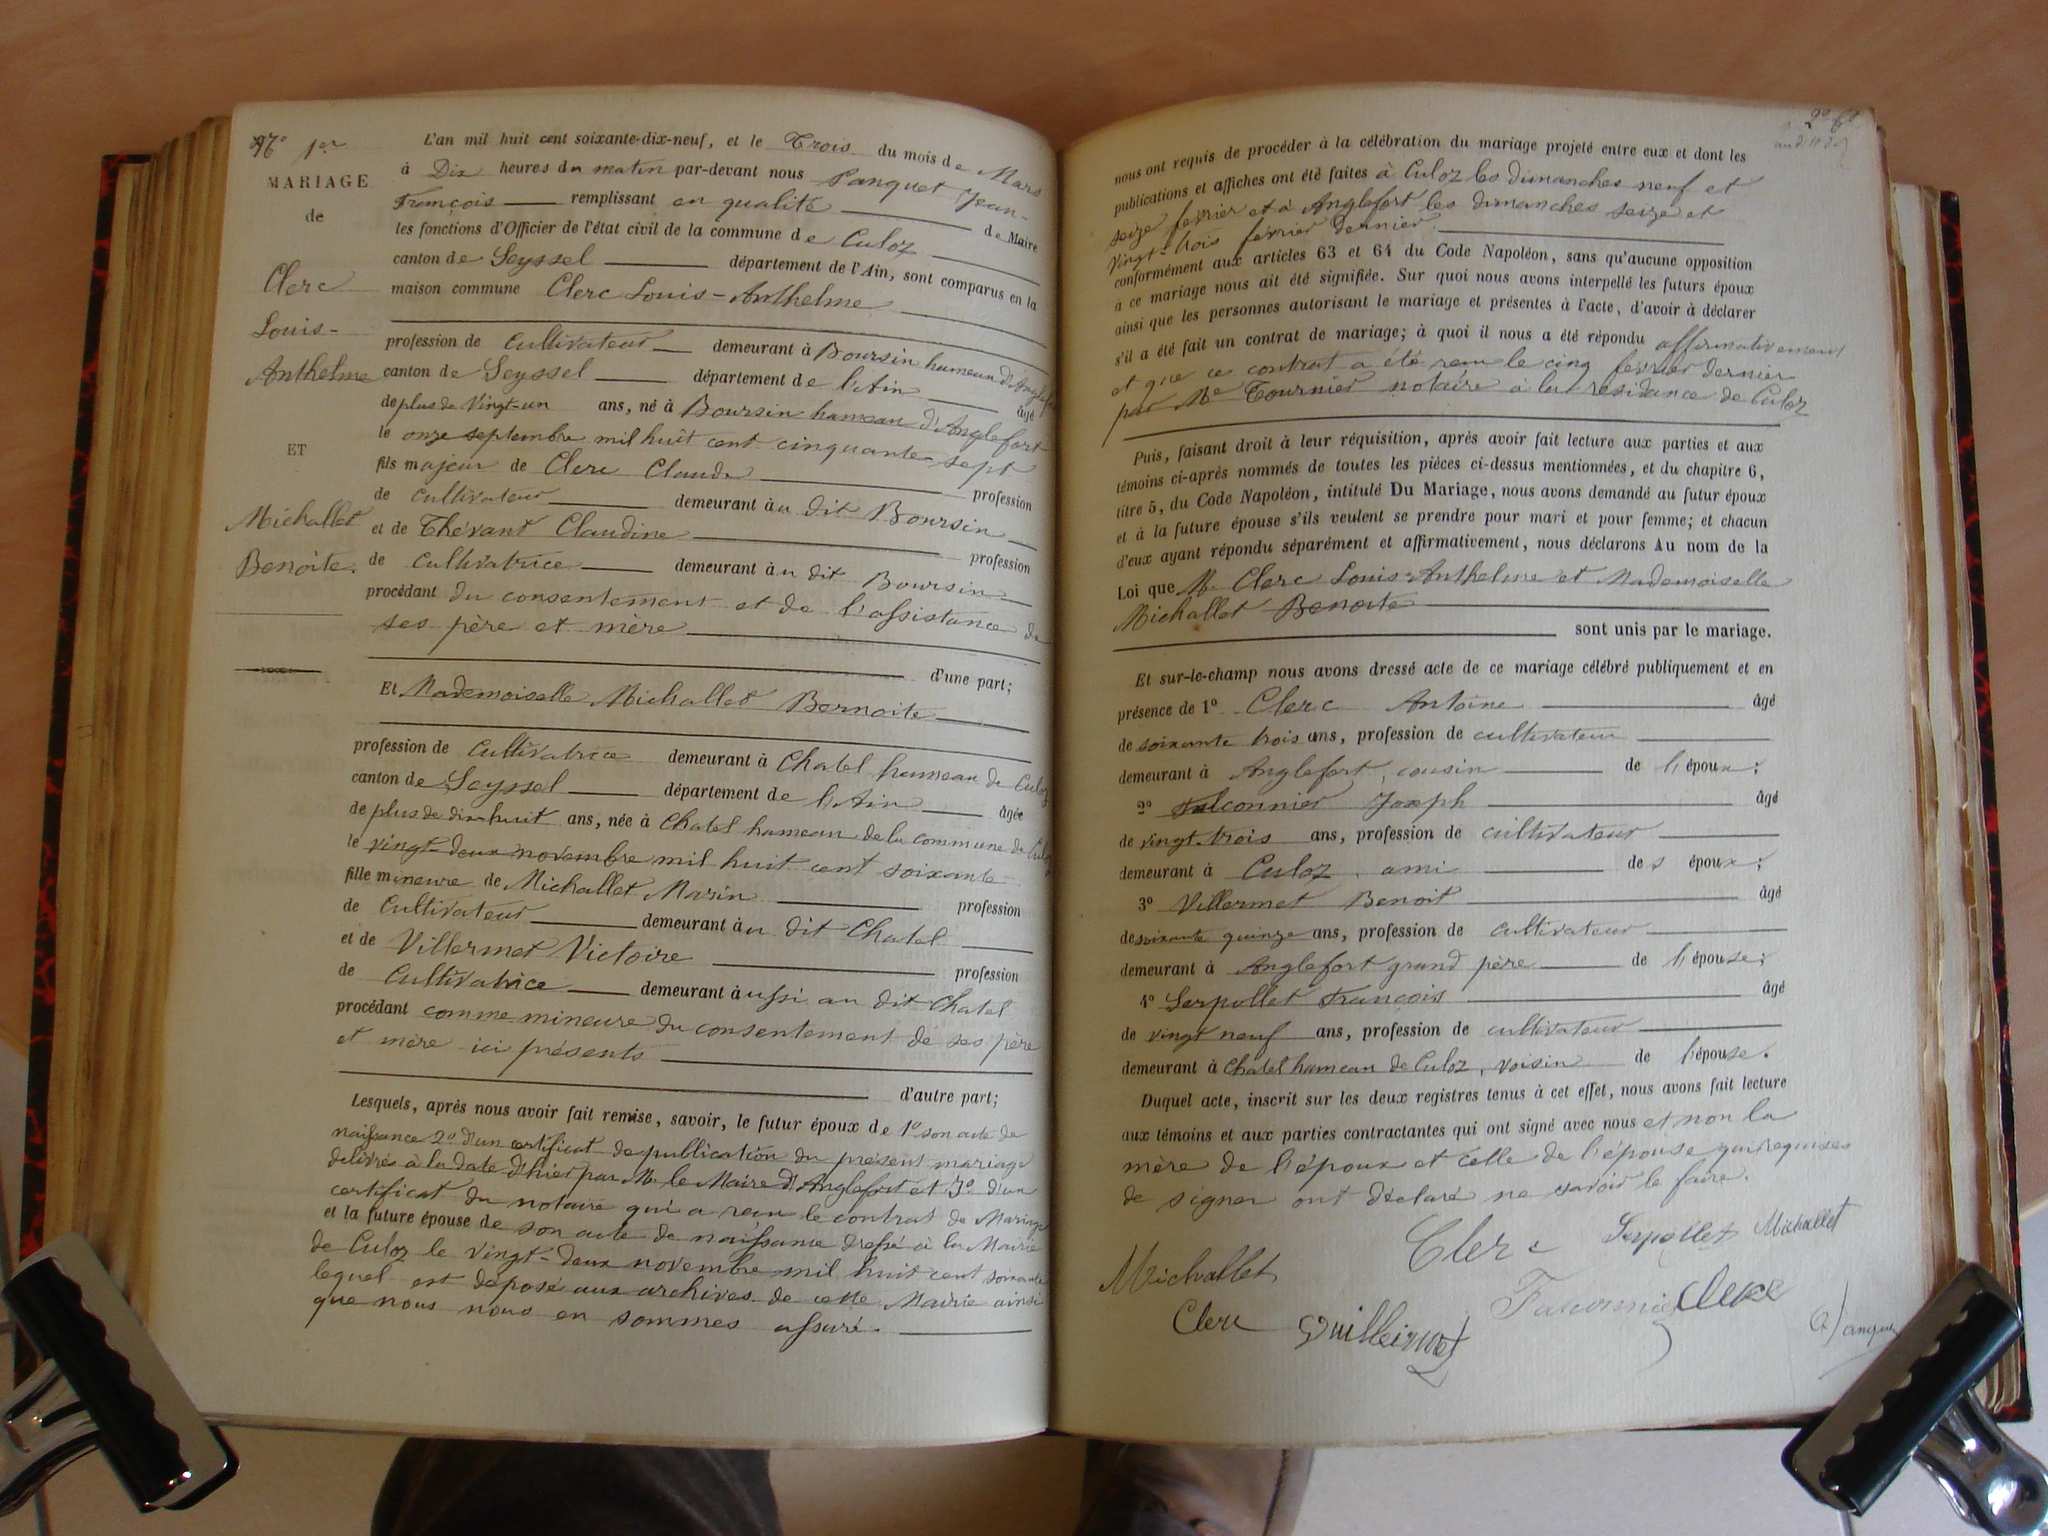 N° 1er
MARIAGE
de
Clerc
Louis-
Anthelme
ET
Michallet
Benoite.
L'an mil huit cent soixante-dix-neuf, et le Trois du mois de Mars
à Dix heures du matin par-devant nous Panquet Jean-
François remplissant en qualité de Maire
les fonctions d'Officier de l'état civil de la commune de Culoz
canton de Seyssel département de l'Ain, sont comparus en la
maison commune Clerc Louis-Anthelme
profession de cultivateur demeurant à Boursin hameau d'Anglefort
canton de Seyssel département de l'Ain âgé
de plus de Vingt-un ans, né à Boursin hameau d'Anglefort
le onze septembre mil huit cent cinquante-sept
fils majeur de Clerc Claude profession
de cultivateur demeurant au dit Boursin
et de Thévant Claudine profession
de cultivatrice demeurant au dit Boursin
procédant du consentement et de l'assistance de
ses père et mère
d'une part;
Et Mademoiselle Michallet Bernoite
profession de cultivatrice demeurant à Chatel hameau de Culoz
canton de Seyssel département de l'Ain âgée
de plus de dix-huit ans, née à Chatel hameau de la commune de Culoz
le vingt-deux novembre mil huit cent soixante
fille mineure de Michallet Marin profession
de Cultivateur demeurant au dit Chatel
et de Villermet Victoire profession
de Cultivatrice demeurant aussi au dit Chatel
procédant comme mineure du consentement de ses père
et mère ici présents
d'autre part;
Lesquels, après nous avoir fait remise, savoir, le futur époux de 1° son acte de
naissance 2° d'un certificat de publication du présent mariage
délivré à la date d'hier par M. le Maire d'Anglefort et 3° d'un
certificat du notaire qui a reçu le contrat de Mariage
et la future épouse de son acte de naissance dressé à la Mairie
de Culoz le vingt-deux novembre mil huit cent soixante
lequel est déposé aux archives de cette Mairie ainsi
que nous nous en sommes assuré.
nous ont requis de procéder à la célébration du mariage projeté entre eux et dont les
publications et affiches ont été faites à Culoz les dimanches neuf et
seize fevrier et à Anglefort les dimanches seize et
vingt-trois fevrier dernier.
conformément aux articles 63 et 64 du Code Napoléon, sans qu'aucune opposition
à ce mariage nous ait été signifiée. Sur quoi nous avons interpellé les futurs époux
ainsi que les personnes autorisant le mariage et présentes à l'acte, d'avoir à déclarer
s'il a été fait un contrat de mariage; à quoi il nous a été répondu affirmativement
et que ce contrat a été reçu le cinq février dernier
par Me Tournier notaire à la résidance de Culoz
Puis, faisant droit à leur réquisition, après avoir fait lecture aux parties et aux
témoins ci-après nommés de toutes les pièces ci-dessus mentionnées, et du chapitre 6,
titre 5, du Code Napoléon, intitulé Du Mariage, nous avons demandé au futur époux
et à la future épouse s'ils veulent se prendre pour mari et pour femme; et chacun
d'eux ayant répondu séparément et affirmativement, nous déclarons Au nom de la
Loi que M. Clerc Louis-Anthelme et Mademoiselle
Michallet Benoite
sont unis par le mariage.
Et sur-le-champ nous avons dressé acte de ce mariage célébré publiquement et en
présence de 1° Clerc Antoine âgé
de soixante trois ans, profession de cultivateur
demeurant à Anglefort, cousin de l'époux;
2° Falconnier Joseph âgé
de vingt-trois ans, profession de cultivateur
demeurant à Culoz, ami des époux;
3° Villermet Benoit âgé
de soixante quinze ans, profession de cultivateur
demeurant à Anglefort grand père de l'épouse;
4° Serpollet François âgé
de vingt neuf ans, profession de cultivateur
demeurant à Chatel hameau de Culoz, voisin de l'épouse.
Duquel acte, inscrit sur les deux registres tenus à cet effet, nous avons fait lecture
aux témoins et aux parties contractantes qui ont signé avec nous et non la
mère de l'époux et celle de l'épouse qui requises
de signer ont déclaré ne savoir le faire.
Clerc Serpollet Michallet
Michallet
Clerc